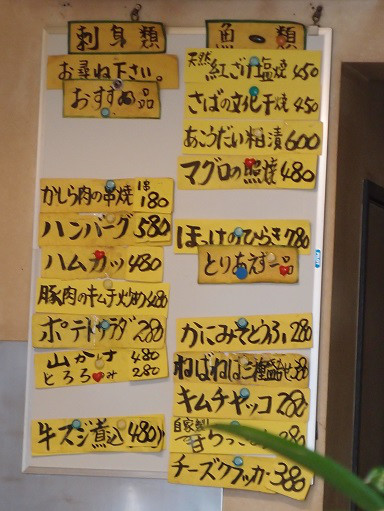 刺身類
お尋ね下さい。
おすすめ品
かしら肉の串焼 1本 180
ハンバーグ 580
ハムカツ 480
豚肉のキムチ炒め 480
ポテトサラダ 280
山かけ 480
とろろのみ 280
牛スジ煮込 480
魚の類
天然 紅ごけ塩焼 450
さばの文化干焼 450
あこうだい粕漬 600
マグロの照焼 480
ほっけのひらき 780
とりあえず一品
かにみそどうふ 280
ねばねば三種盛合せ 380
キムチヤッコ 280
自家製 甘らっきょう 280
チーズクラッカー 380